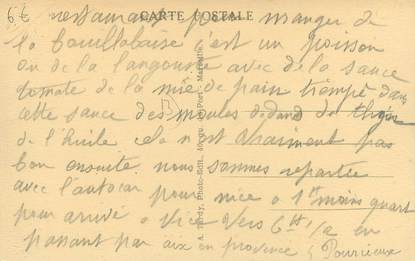 6€
CARTE POSTALE
restaurant pour manger de
la bouillabaise c'est un poisson
ou de la langouste avec de la sauce
tomate de la mie de pain trempé dans
cette sauce des moules dedans du
de l'huile cela n'est vraiment pas
bon ensuite nous sommes repartie
avec l'autocar pour nice a 1h moins quart
pour arrivé a Nice vers 6h 1/2 en
passant par aix en provence
Tardy, Photo-Edit., Marseille